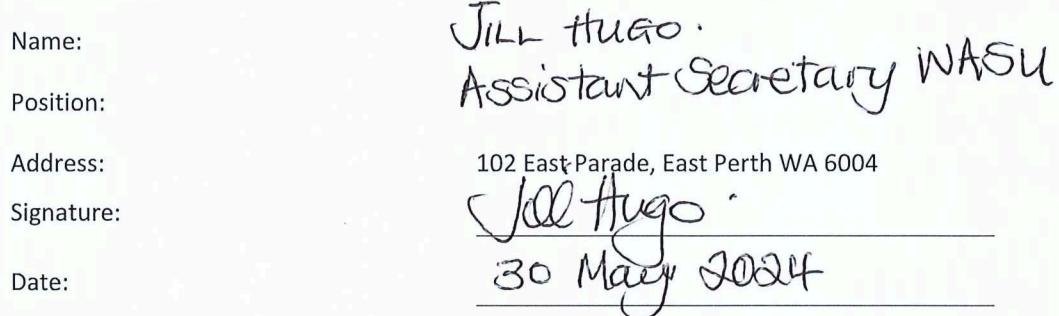 Name: JILL HUGO.
Position: Assistant Secretary WASU
Address: 102 East Parade, East Perth WA 6004
Signature: Jill Hugo.
Date: 30 May 2024